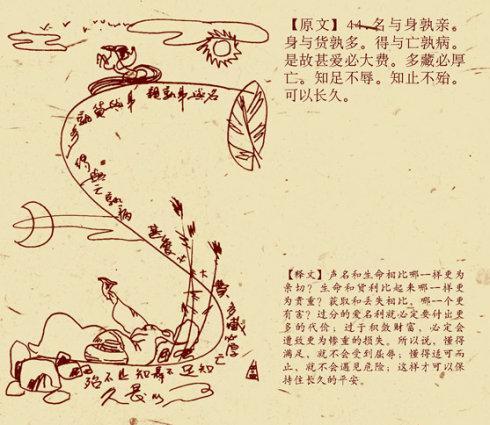 【原文】44.名与身孰亲。
身与货孰多。得与亡孰病。
是故甚爱必大费。多藏必厚
亡。知足不辱。知止不殆。
可以长久。
【释文】声名和生命相比哪一样更为
亲切?生命和货利比起来哪一样更
为贵重?获取和丢失相比,哪一个更
有害?过分的爱名利就必定要付出更
多的代价;过于积敛财富,必定会
遭致更为惨重的损失。所以说,懂得
满足,就不会受到屈辱;懂得适可而
止,就不会遇见危险;这样才可以保
持住长久的平安。
多藏必厚亡